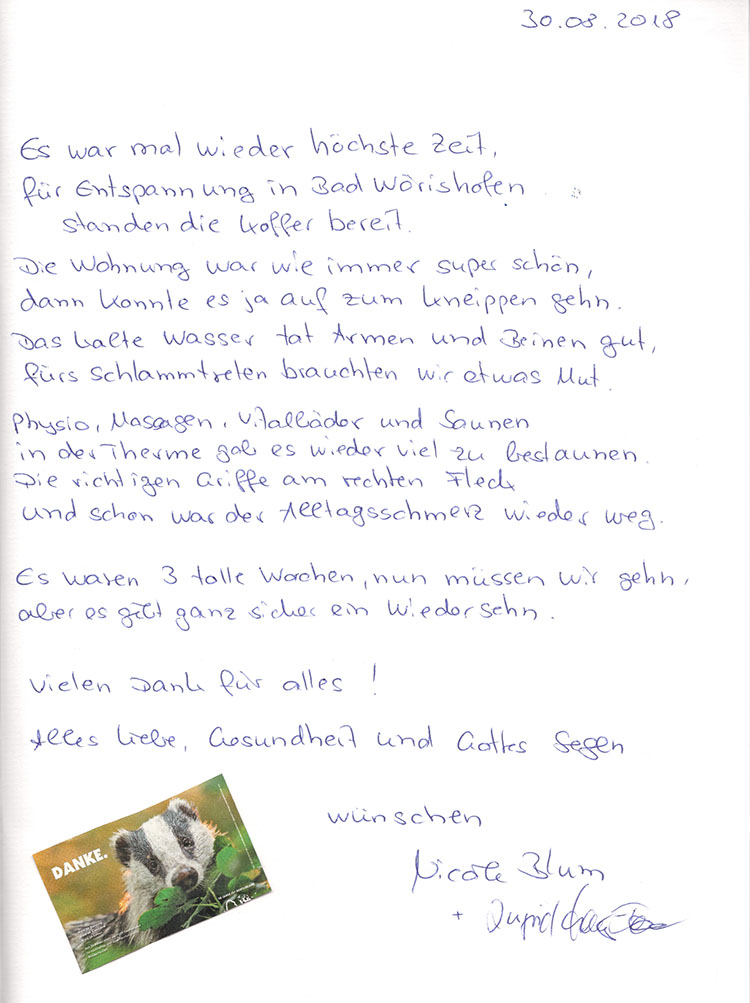 30.08.2018
Es war mal wieder höchste Zeit,
für Entspannung in Bad Wörishofen
standen die Koffer bereit.
Die Wohnung war wie immer super schön,
dann konnte es ja auf zum kneippen gehn.
Das kalte Wasser tat Armen und Beinen gut,
fürs Schlammtreten brauchten wir etwas Mut.
Physio, Massagen, Vitalbäder und Saunen
in der Therme gab es wieder viel zu bestaunen.
Die richtigen Griffe am rechten Fleck
und schon war der Alltagsschmerz wieder weg.
Es waren 3 tolle Wochen, nun müssen wir gehn,
aber es gibt ganz sicher ein Wiedersehn.
Vielen Dank für alles!
Alles Liebe, Gesundheit und Gottes Segen
wünschen
DANKE.
Nicole Blum
+